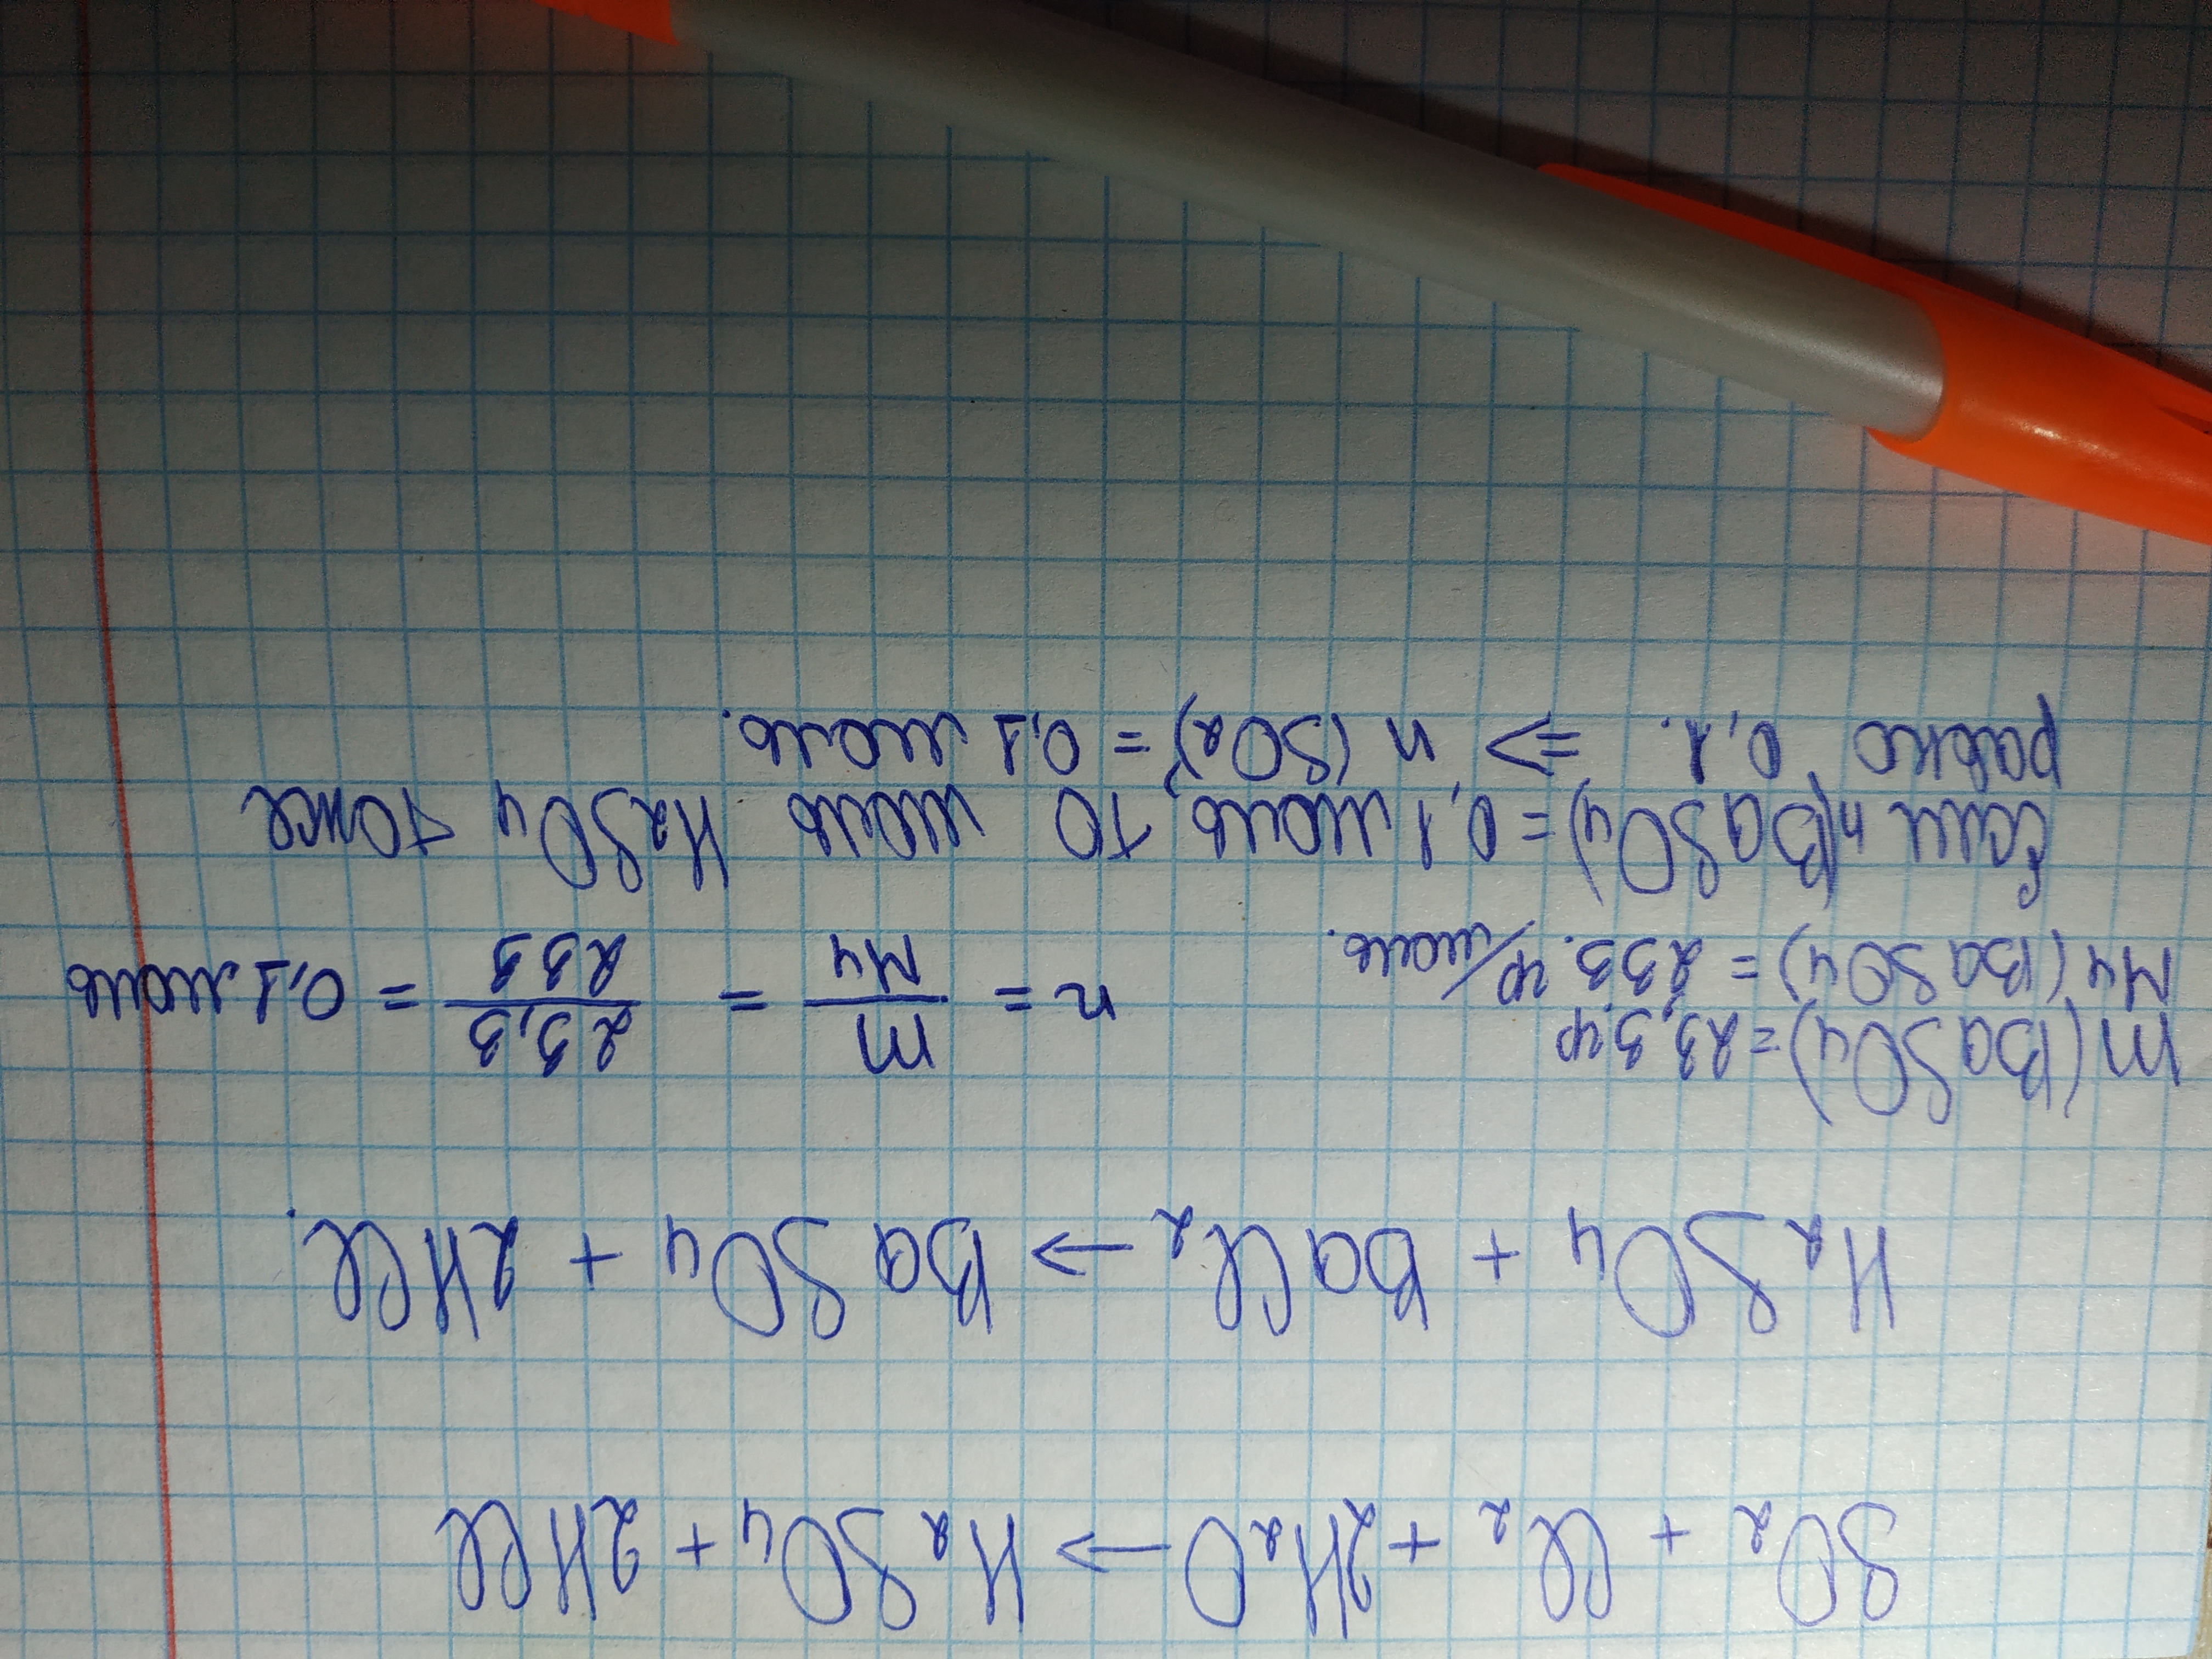 SO₂ + Cl₂ + 2H₂O → H₂SO₄ + 2HCl
H₂SO₄ + BaCl₂ → BaSO₄ + 2HCl.
m(BaSO₄) = 23,3 гр
Mч(BaSO₄) = 233. гр/моль.
n = m/Mч = 23,3/233 = 0,1 моль
Если n(BaSO₄) = 0,1 моль, то моль H₂SO₄ тоже
равно 0,1. ⇒ n (SO₂) = 0,1 моль.